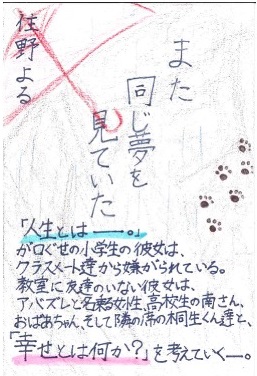 住野よる
また
同じ夢を
見ていた
「人生とは――。」
が口ぐせの小学生の彼女は、
クラスメート達から嫌がられている。
教室に友達のいない彼女は、
アバズレと名乗る女性、高校生の南さん、
おばあちゃん、そして隣の席の桐生くん達と、
「幸せとは何か？」を考えていく―。